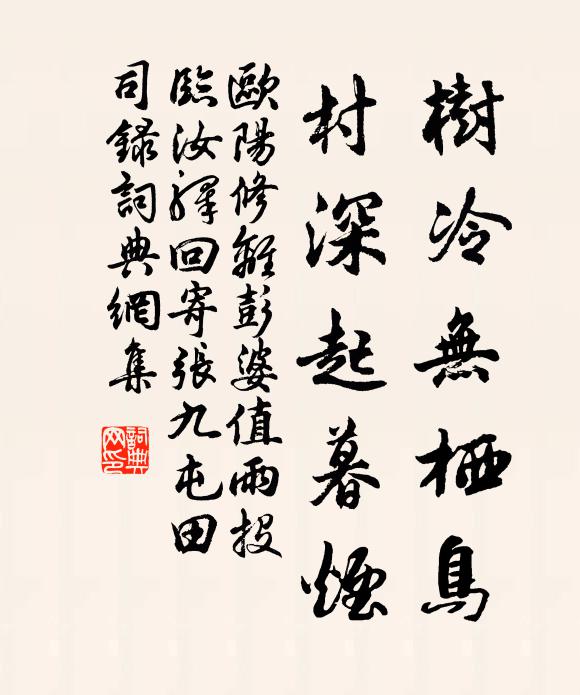 樹冷無栖鳥
村深起暮煙
歐陽修離彭婆值雨投
臨汝驛回寄張九屯田
司錄詞典網集
詞典
网印